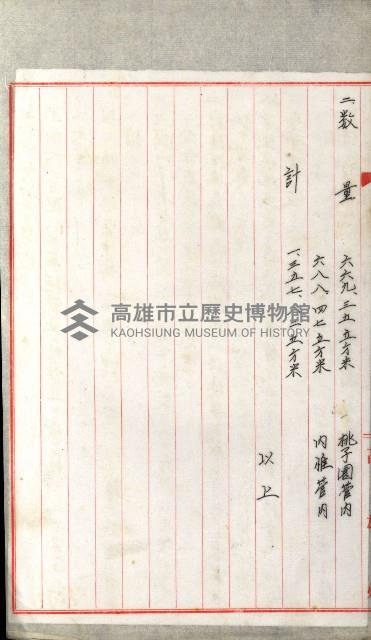 二、数 量 六六九、三五立方米 桃子園管内
六八八、四七立方米 内惟管内
計 一、三五七、八二立方米
以上
高雄市立歷史博物館
KAOHSIUNG MUSEUM OF HISTORY